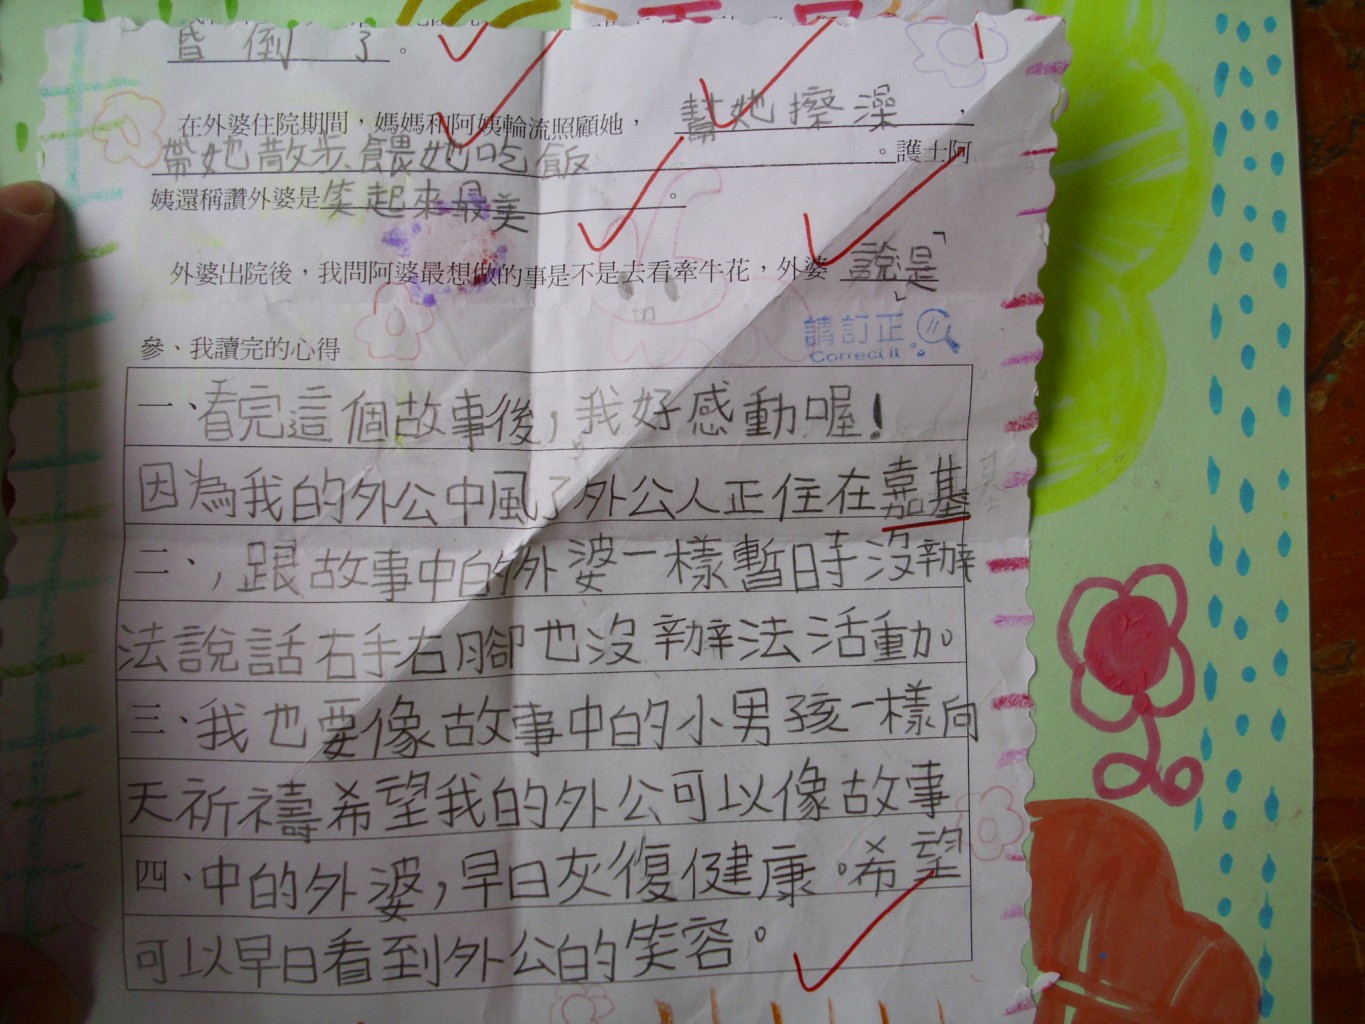 昏倒了。
在外婆住院期間,媽媽和阿姨輪流照顧她,幫她擦澡,
帶她散步餵她吃飯。護士阿
姨還稱讚外婆是笑起來最美。
外婆出院後,我問阿婆最想做的事是不是去看牽牛花,外婆說「是」
請訂正
Correct it
參、我讀完的心得
一、看完這個故事後,我好感動喔!
因為我的外公中風了外公人正住在嘉基
二、,跟故事中的外婆一樣暫時沒辦
法說話右手右腳也沒辦法活動。
三、我也要像故事中的小男孩一樣向
天祈禱希望我的外公可以像故事
四、中的外婆,早日灰復健康。希望
可以早日看到外公的笑容。